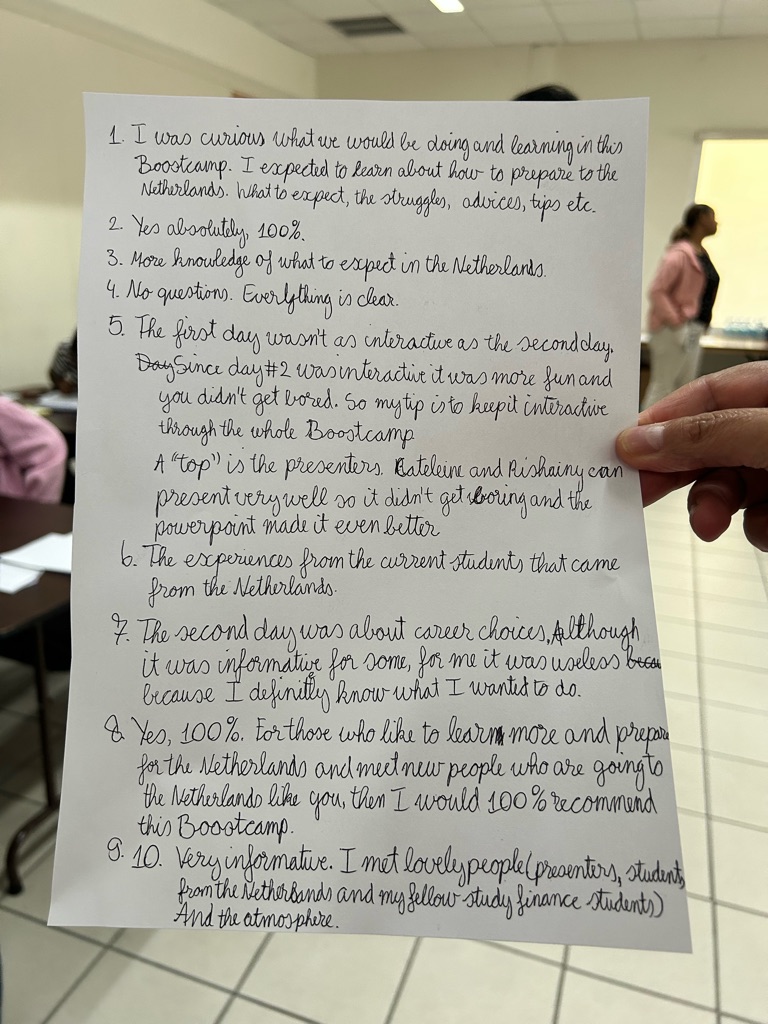 1. I was curious what we would be doing and learning in this
Boostcamp. I expected to learn about how to prepare to the
Netherlands. What to expect, the struggles, advices, tips etc.
2. Yes absolutely, 100%.
3. More knowledge of what to expect in the Netherlands.
4. No questions. Everything is clear.
5. The first day wasn't as interactive as the second day.
Day Since day #2 was interactive it was more fun and
you didn't get bored. So my tip is to keep it interactive
through the whole Boostcamp
A "top" is the presenters. Kateleine and Rishainy can
present very well so it didn't get boring and the
powerpoint made it even better
6. The experiences from the current students that came
from the Netherlands.
7. The second day was about career choices, Although
it was informative for some, for me it was useless becau
because I definitly know what I wanted to do.
8. Yes, 100%. For those who like to learn more and prepare
for the Netherlands and meet new people who are going to
the Netherlands like you, then I would 100% recommend
this Boostcamp.
9. 10. Very informative. I met lovely people (presenters, students
from the Netherlands and my fellow study finance students)
And the atmosphere.